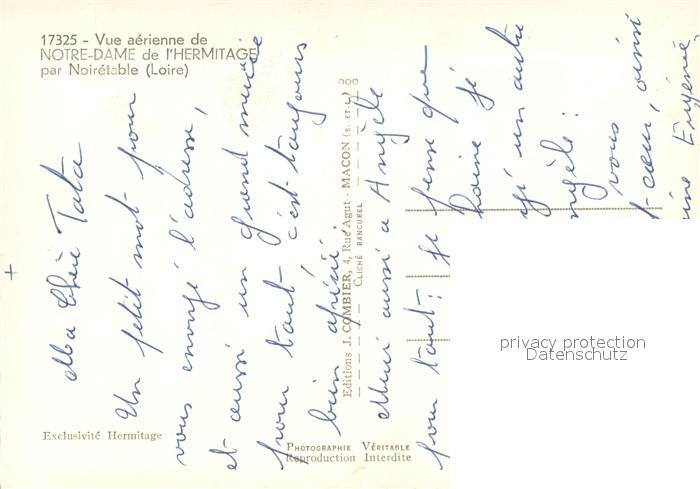 17325 - Vue aérienne de
NOTRE-DAME de l'HERMITAGE
par Noirétable (Loire)
Ma Chère Tata
Un petit mot pour
vous envoyé l'adresse,
et aussi un grand merci
pour tout c'est toujours
bien apécié.
Merci aussi a Angèle
pour tout; je pense que
haine je
un autre
ngèle:
vous
coeur, ainsi
Eugénie,
Editions J. COMBIER, 4, Rue Agut - MACON (S.-ET-L.)
CLICHÉ RANCUREL
Exclusivité Hermitage
PHOTOGRAPHIE VÉRITABLE
Reproduction Interdite
privacy protection
Datenschutz